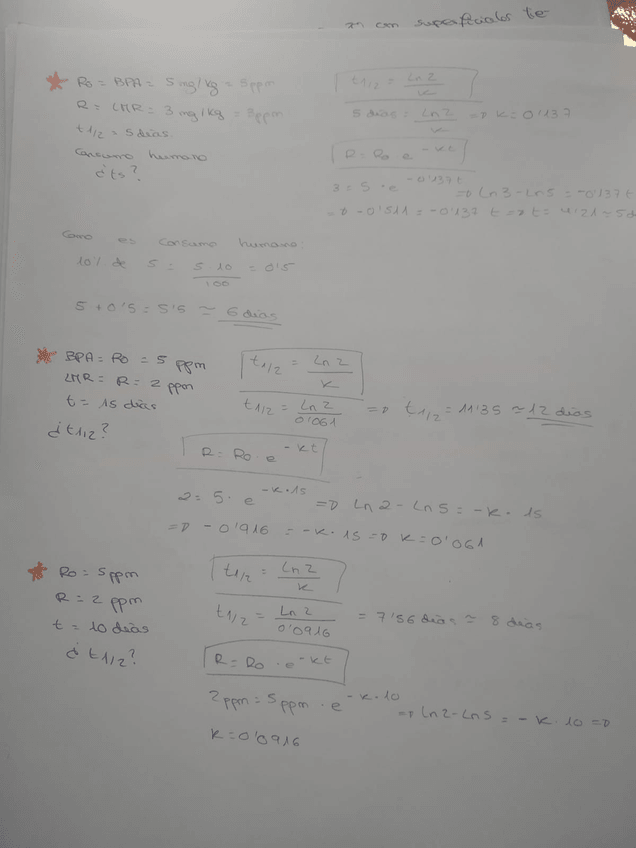 con superficiales te
R0 = BPA = 5 mg/kg = 5ppm
R = LMR = 3 mg/kg = 3ppm
t1/2 = 5 días
Consumo humano
¿ts?
t1/2 = Ln 2 / K
5 días = Ln 2 / K => K = 0'137
R = R0 e^-Kt
3 = 5 · e^-0'137t => Ln3 - Ln5 = -0'137 t
=> -0'511 = -0'137 t => t = 4'21 = 5d
Como es consumo humano:
10% de 5 = 5 10 / 100 = 0'5
5 + 0'5 = 5'5 ≃ 6 días
BPA = R0 = 5 ppm
LMR = R = 2 ppm
t = 15 días
¿t1/2?
t1/2 = Ln 2 / K
t1/2 = Ln 2 / 0'061 => t1/2 = 11'35 ≃ 12 días
R = R0 · e^-Kt
2 = 5 · e^-K·15 => Ln 2 - Ln 5 = -K · 15
=> -0'916 = -K · 15 => K = 0'061
R0 = 5 ppm
R = 2 ppm
t = 10 días
¿t1/2?
t1/2 = Ln 2 / K
t1/2 = Ln 2 / 0'0916 = 7'56 días ≃ 8 días
R = R0 · e^-Kt
2 ppm = 5 ppm · e^-K·10 => Ln2 - Ln5 = -K · 10 =>
K = 0'0916